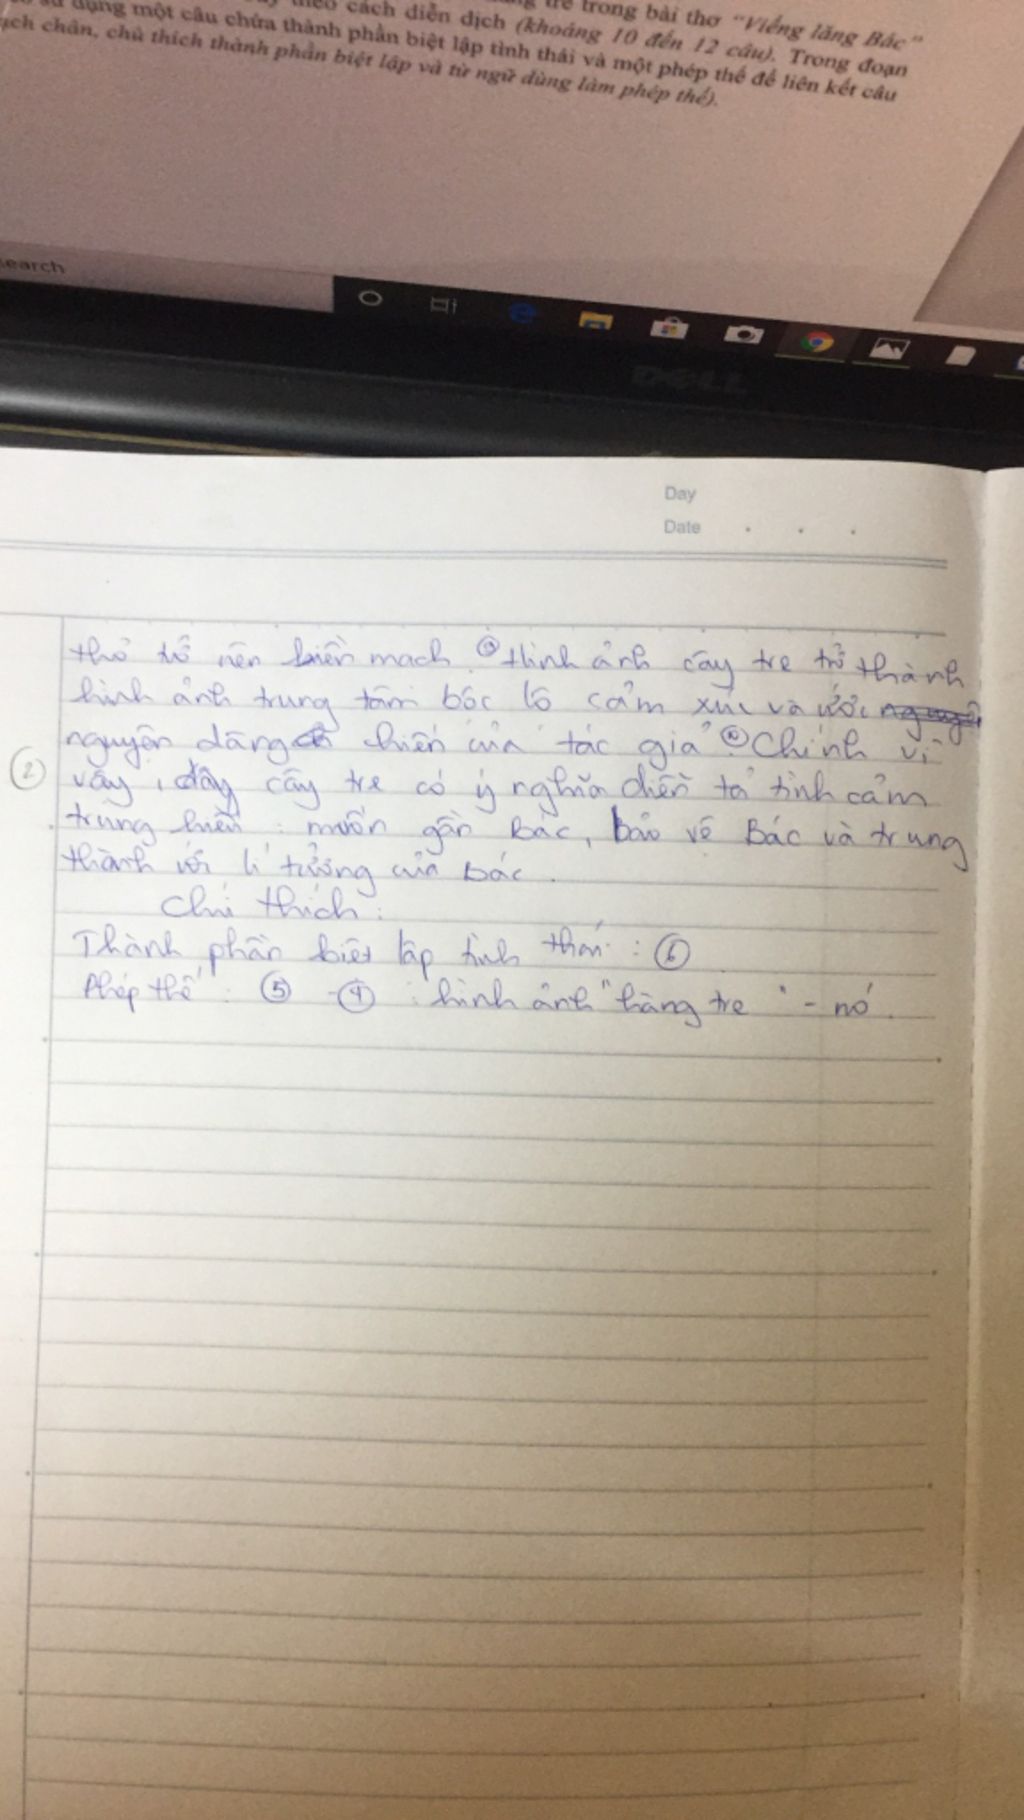 tre trong bài thơ "Viếng lăng Bác"
cách diễn dịch (khoảng 10 đến 12 câu). Trong đoạn
dụng một câu chứa thành phần biệt lập tình thái và một phép thế để liên kết câu
chân, chú thích thành phần biệt lập và từ ngữ dùng làm phép thế).
earch
DELL
Day
Date
thơ trở nên liền mạch. Hình ảnh cây tre trở thành
hình ảnh trung tâm bộc lộ cảm xúc và ước
nguyện dâng hiến của tác giả Chính vì
② vậy, cây tre có ý nghĩa diễn tả tình cảm
trung hiếu: muốn gần Bác, bảo vệ Bác và trung
thành với lí tưởng của Bác.
Chú thích:
Thành phần biệt lập tình thái: ⑥
Phép thế: ⑤ - ④ : hình ảnh "hàng tre" - nó.